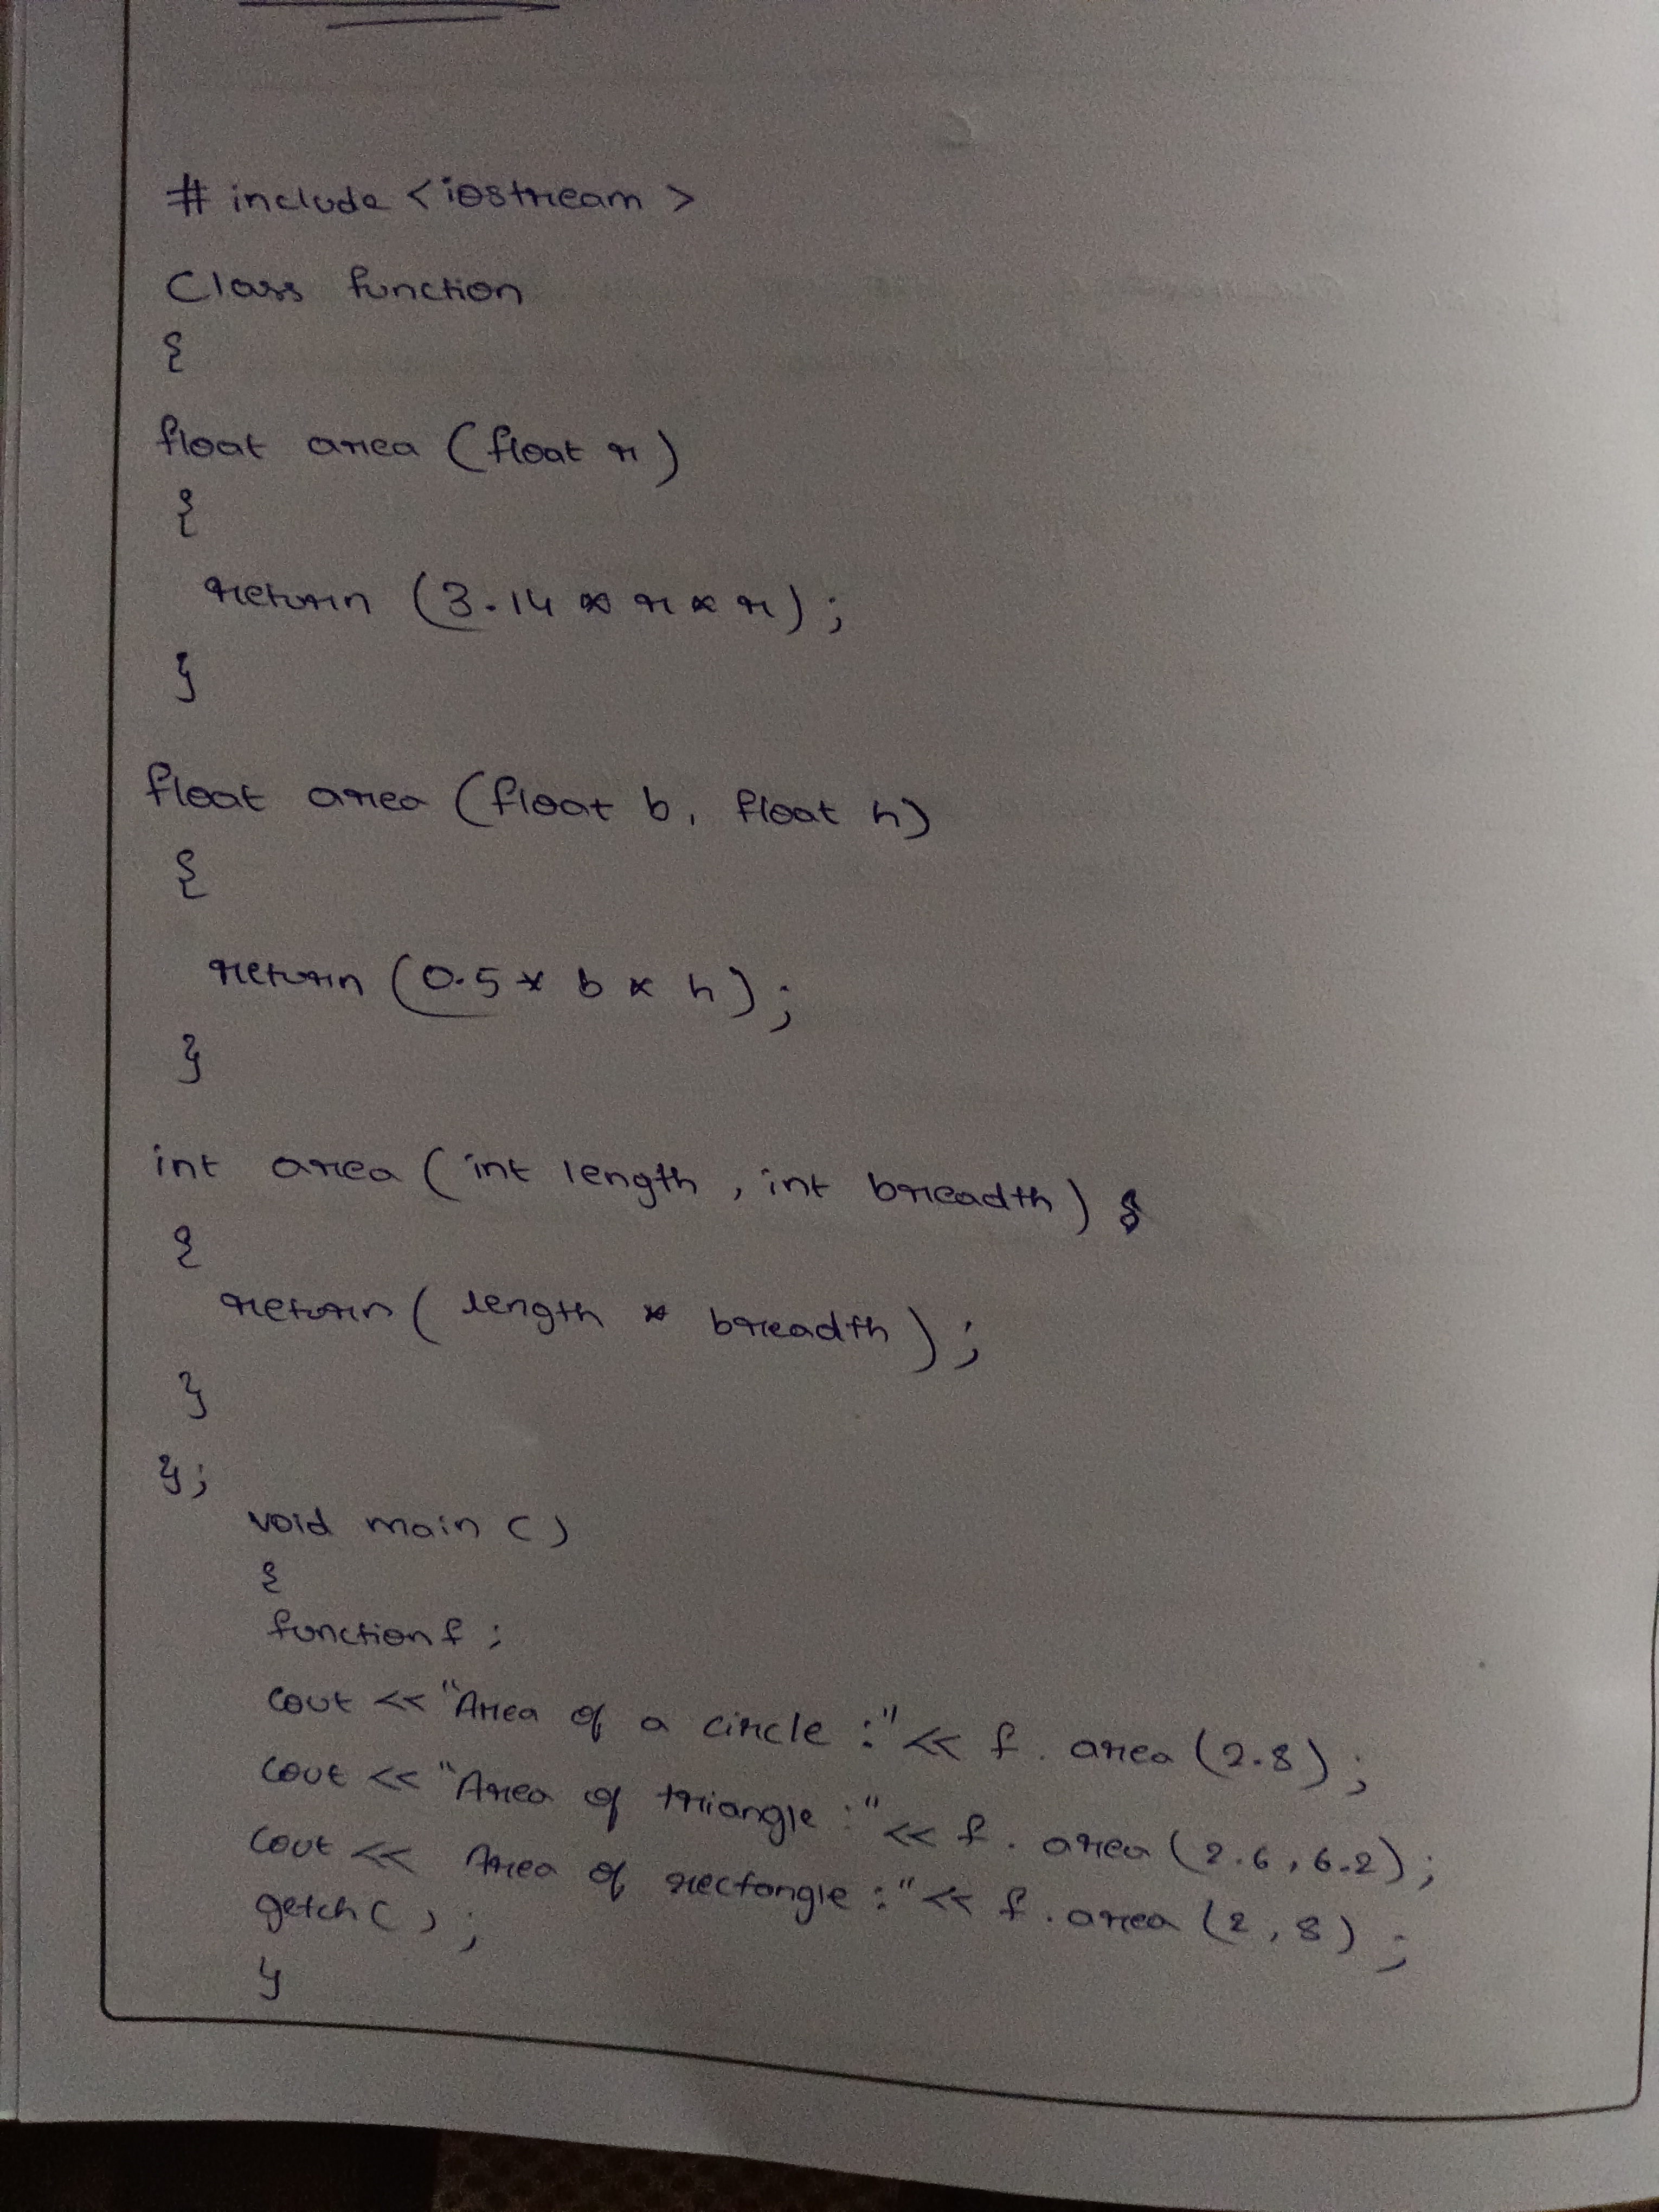 # include <iostream>
Class function
{
float area (float r)
{
return (3.14 * r * r);
}
float area (float b, float h)
{
return (0.5 * b * h);
}
int area (int length, int breadth)
{
return (length * breadth);
}
};
void main ()
{
function f;
cout << "Area of a circle :" << f. area (2.8);
cout << "Area of triangle :" << f. area (2.6, 6.2);
cout << Area of rectangle :" << f. area (2, 8);
getch ();
}